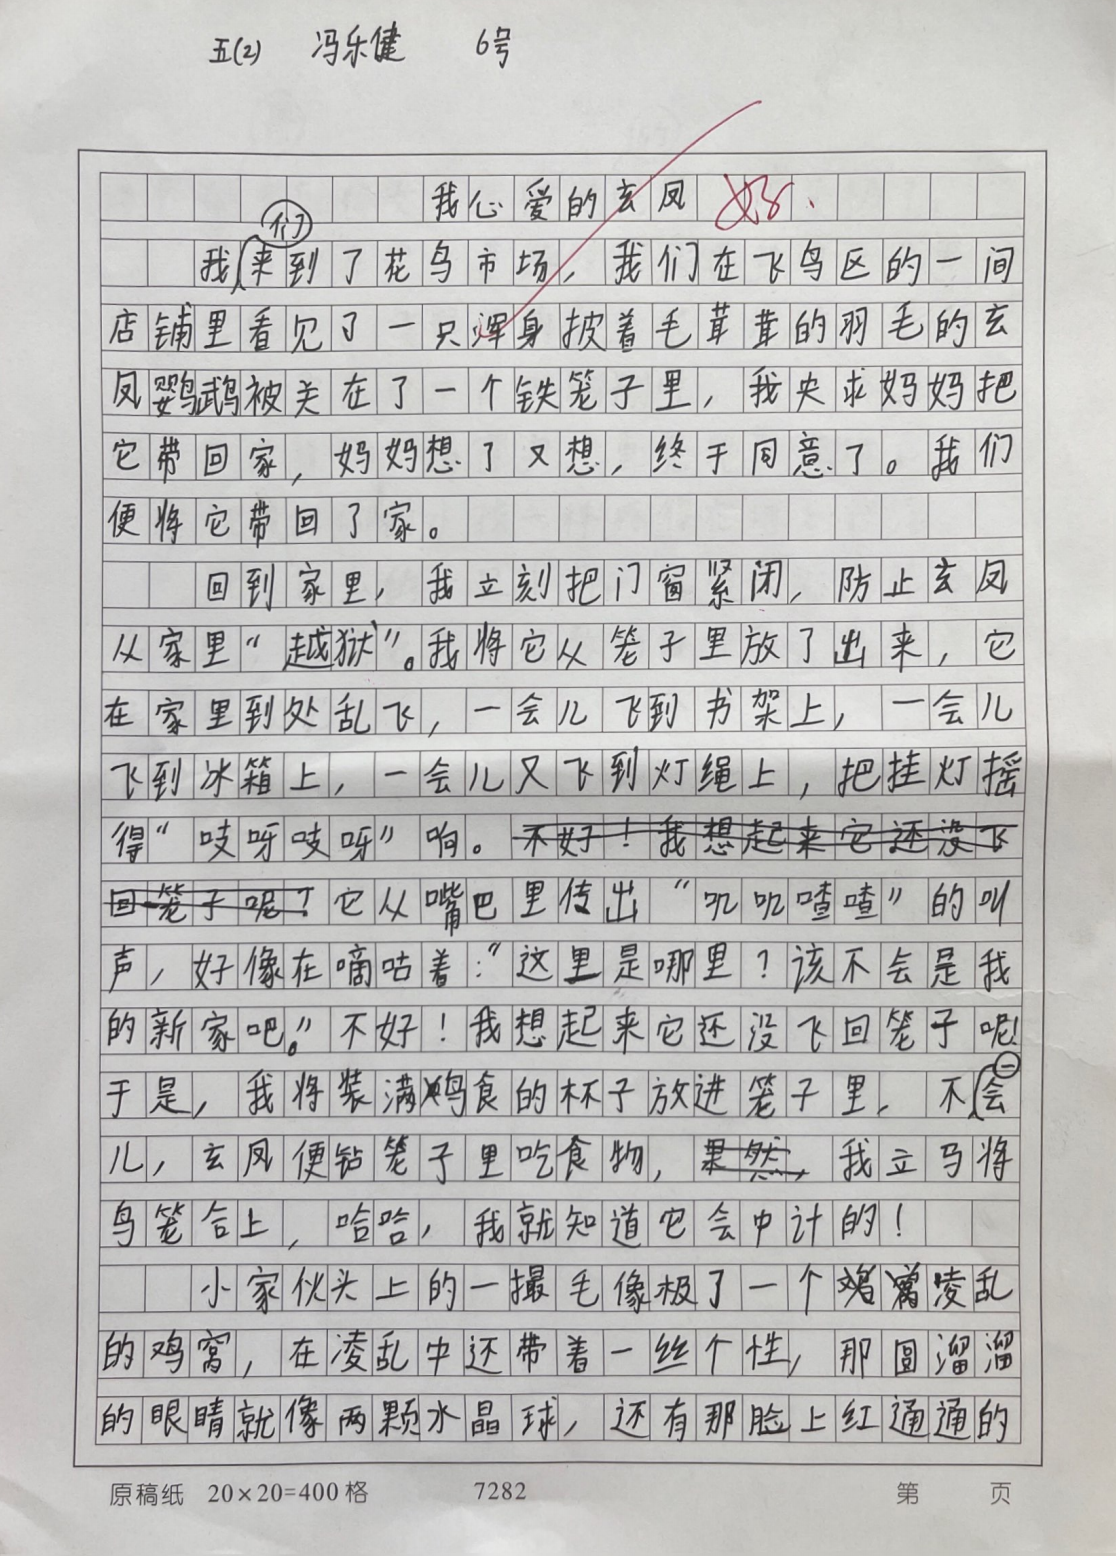 五(2) 冯乐健 6号
我心爱的玄凤 好.
我们来到了花鸟市场，我们在飞鸟区的一间
店铺里看见了一只浑身披着毛茸茸的羽毛的玄
凤鹦鹉被关在了一个铁笼子里，我央求妈妈把
它带回家，妈妈想了又想，终于同意了。我们
便将它带回了家。
回到家里，我立刻把门窗紧闭，防止玄凤
从家里“越狱”。我将它从笼子里放了出来，它
在家里到处乱飞，一会儿飞到书架上，一会儿
飞到冰箱上，一会儿又飞到灯绳上，把挂灯摇
得“吱呀吱呀”响。不好！我想起来它还没飞
回笼子呢？它从嘴巴里传出“叽叽喳喳”的叫
声，好像在嘀咕着：“这里是哪里？该不会是我
的新家吧。”不好！我想起来它还没飞回笼子呢！
于是，我将装满鸡食的杯子放进笼子里，不一会
儿，玄凤便钻笼子里吃食物，果然，我立马将
鸟笼合上，哈哈，我就知道它会中计的！
小家伙头上的一撮毛像极了一个凌乱
的鸡窝，在凌乱中还带着一丝个性，那圆溜溜
的眼睛就像两颗水晶球，还有那脸上红通通的
原稿纸 20×20=400格 7282 第 页